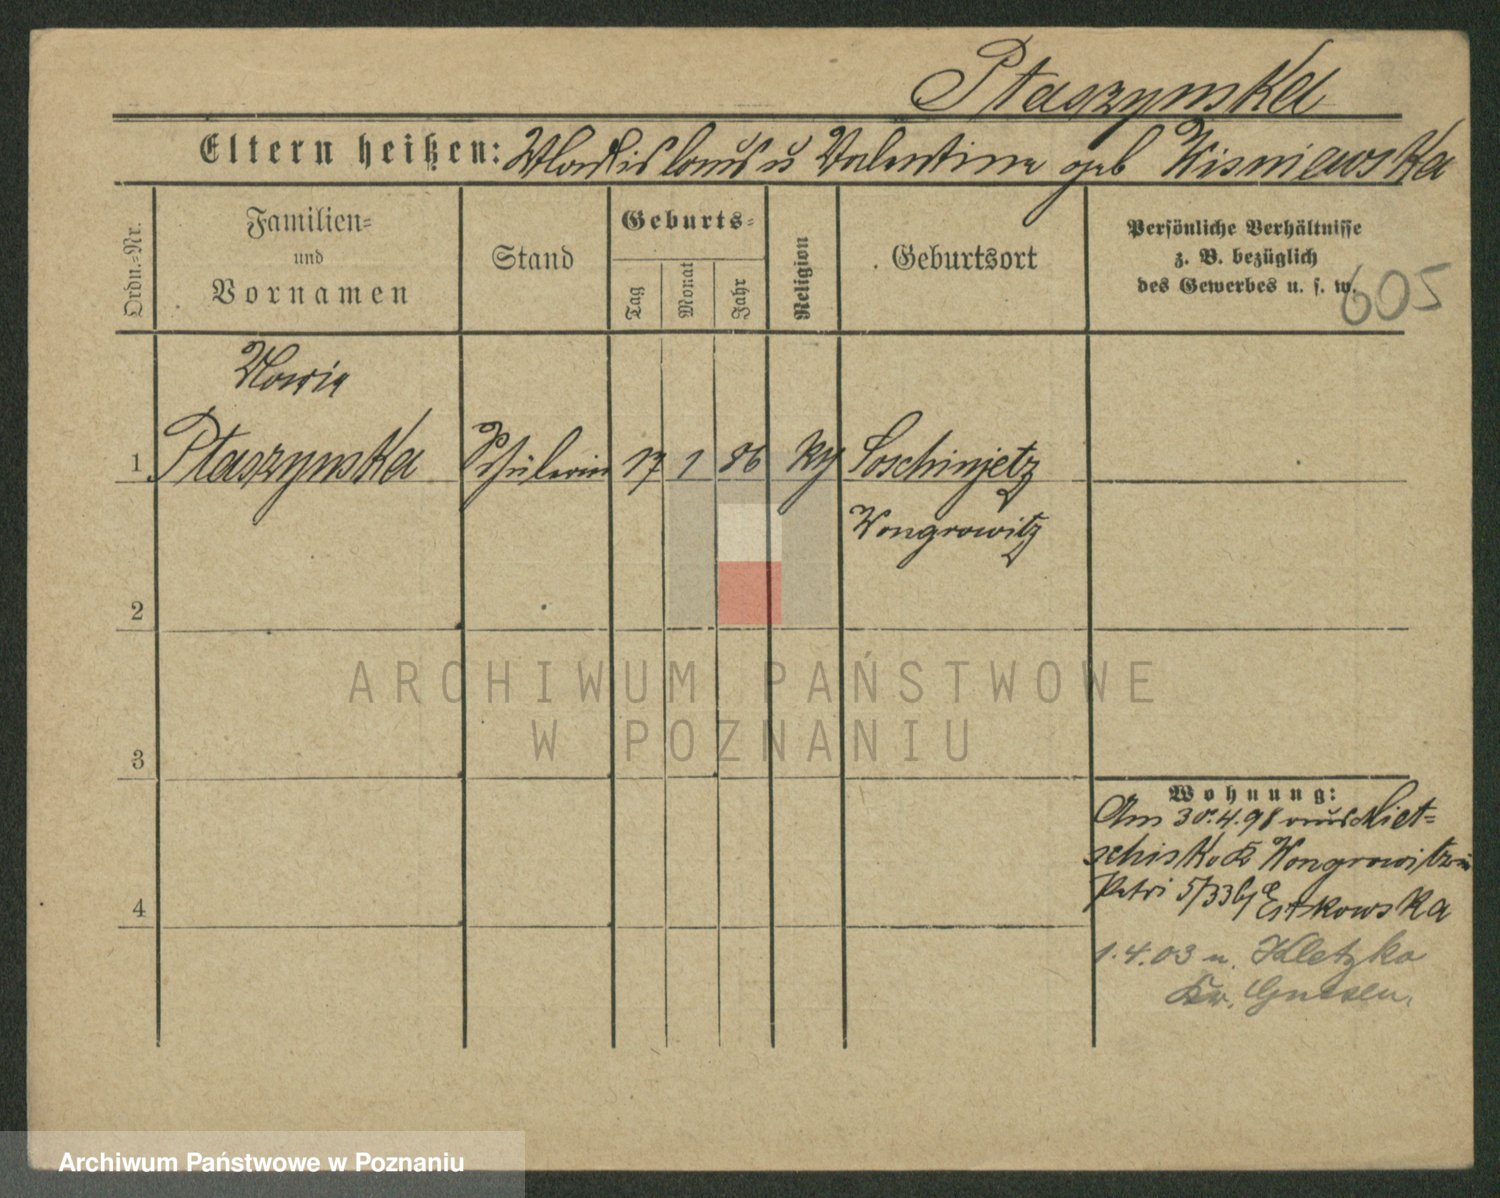 Ptaszynska
Eltern heißen: Wladislaus u Valentine geb Wisniewska
Ordn.-Nr.
Familien-
und
Vornamen
Stand
Geburts-
Tag
Monat
Jahr
Religion
Geburtsort
Persönliche Verhältnisse
z. B. bezüglich
des Gewerbes u. s. w.
605
Maria
1 Ptaszynska Schülerin 17 1 86 Loschinjetz
Wongrowitz
2
3
4
Wohnung:
Am 30.4.98 aus Miet=
schisko K Wongrowitz
Petri 5/33 Estkowska
1.4.03 n. Kletzko
Kr. Gnesen.
ARCHIWUM PAŃSTWOWE
W POZNANIU
Archiwum Państwowe w Poznaniu